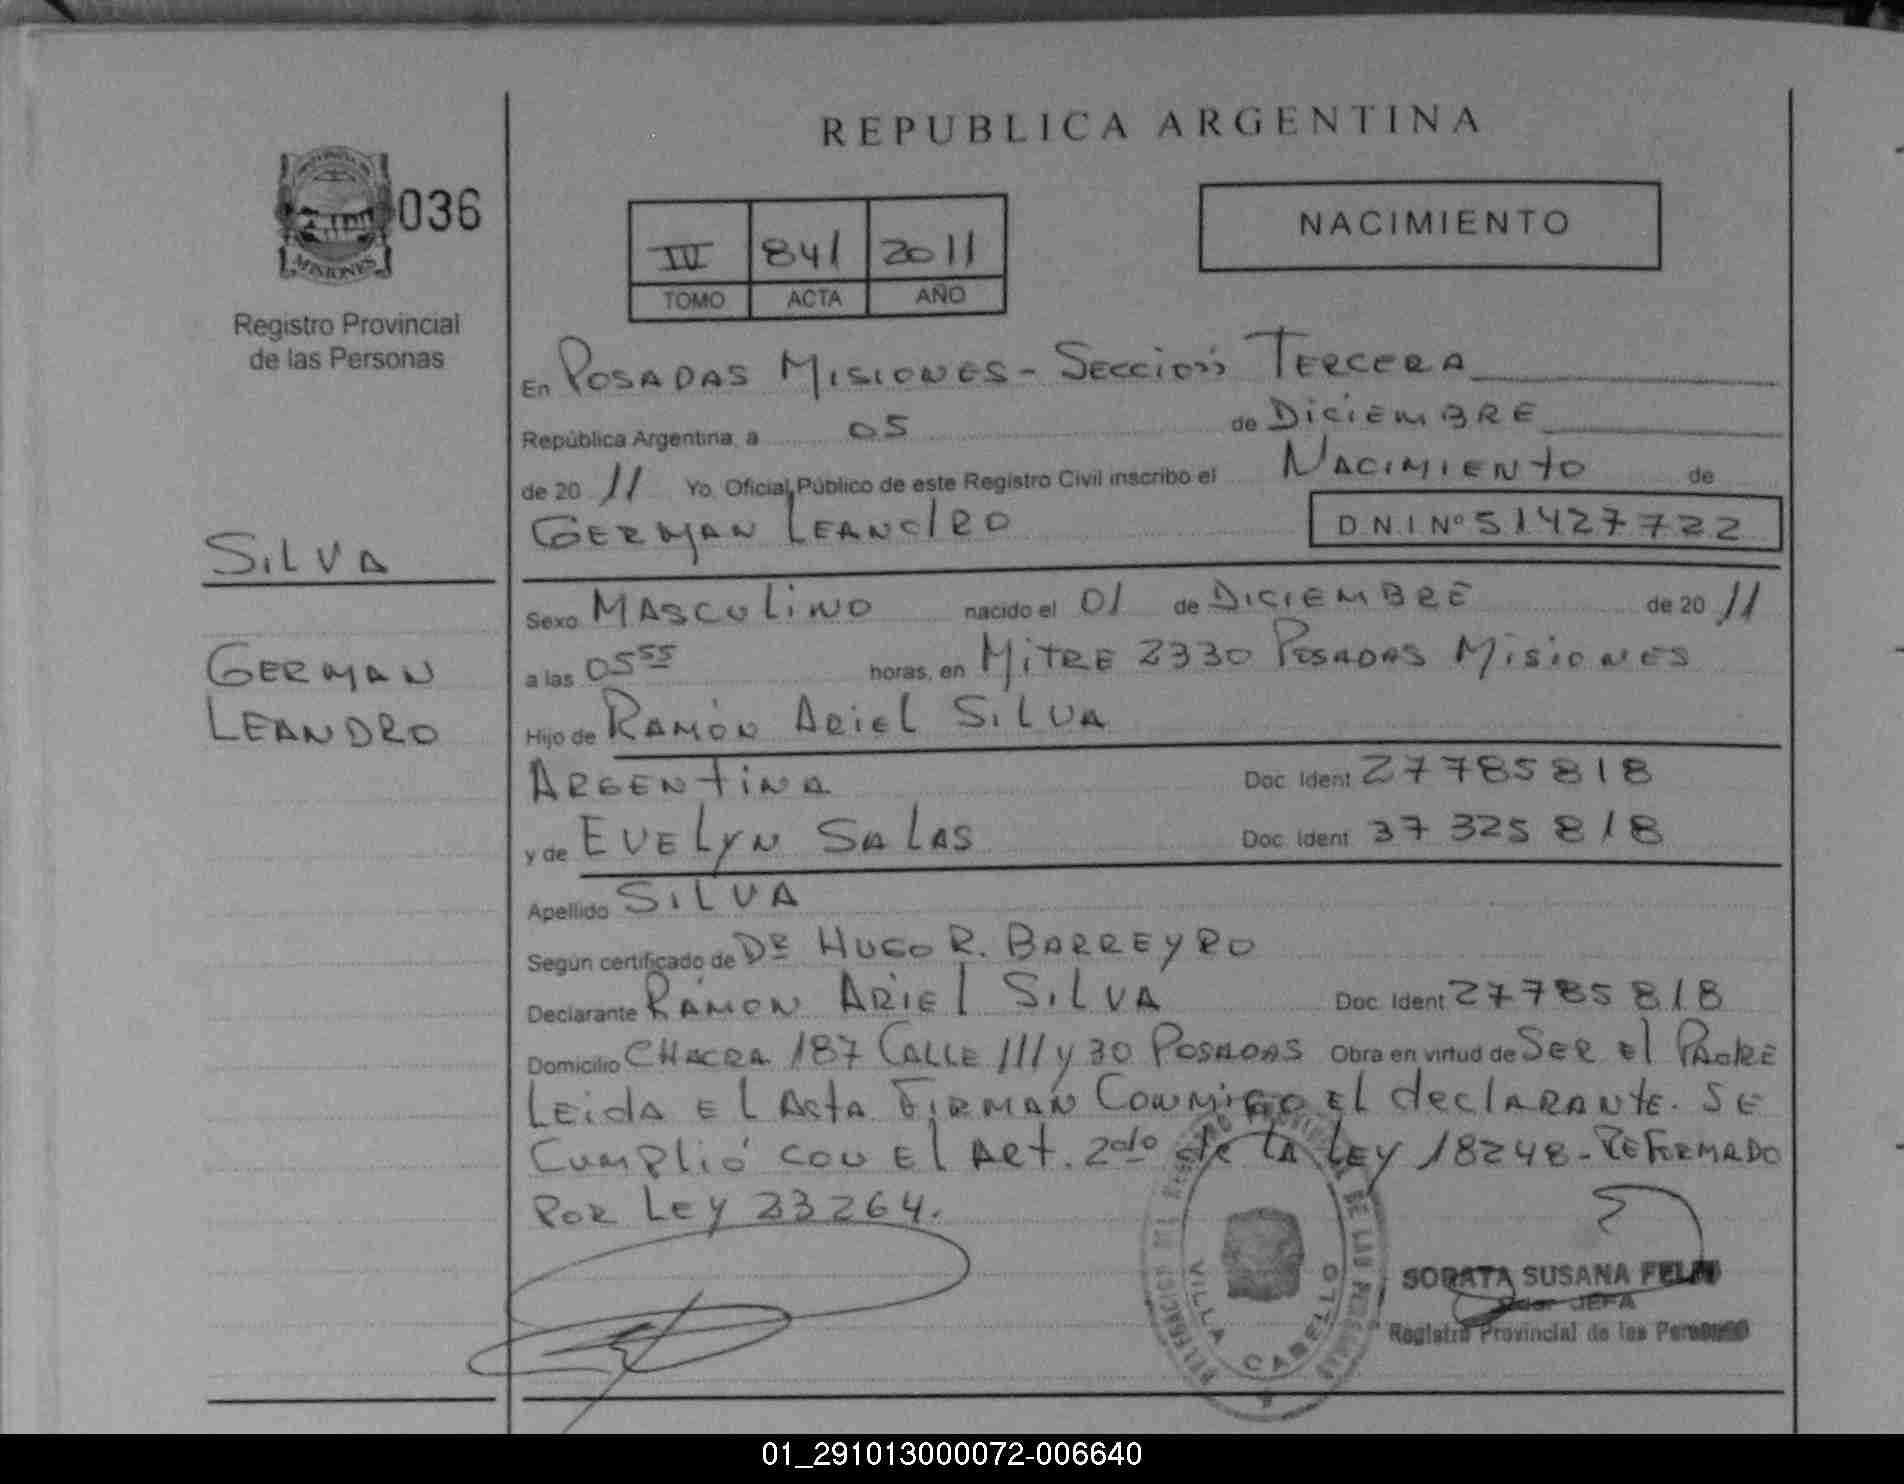 REPUBLICA ARGENTINA
MISIONES
036
Registro Provincial
de las Personas
IV 841 2011
TOMO ACTA AÑO
NACIMIENTO
En POSADAS MISIONES - SECCIÓN TERCERA
República Argentina, a 05 de DiciEMBRE
de 2011 Yo, Oficial Público de este Registro Civil inscribo el NACIMIENTO de
GERMAN LEANDRO D.N.I Nº 51427722
SILVA
Sexo MASCULINO nacido el 01 de DICIEMBRE de 2011
GERMAN
a las 05 55 horas, en MITRE 2330 POSADAS MISIONES
LEANDRO
Hijo de RAMÓN ARIEL SILVA
ARGENTINA Doc. Ident 27785818
y de EVELYN SALAS Doc. Ident 37325818
Apellido SILVA
Según certificado de DR HUGO R. BARREYRO
Declarante RAMON ARIEL SILVA Doc. Ident 27785818
Domicilio CHACRA 187 CALLE 111 y 30 POSADAS Obra en virtud de SER El PADRE
LEIDA EL ActA FIRMAN CONMIGO EL dEclARANTE. SE
CUMPLIÓ CON El ARt. 2do de LA LEY 18248 - REFORMADO
POR LEY 23264.
VILLA CABELLO
SUSANA
JEFA
Registro Provincial de las Personas
01_291013000072-006640